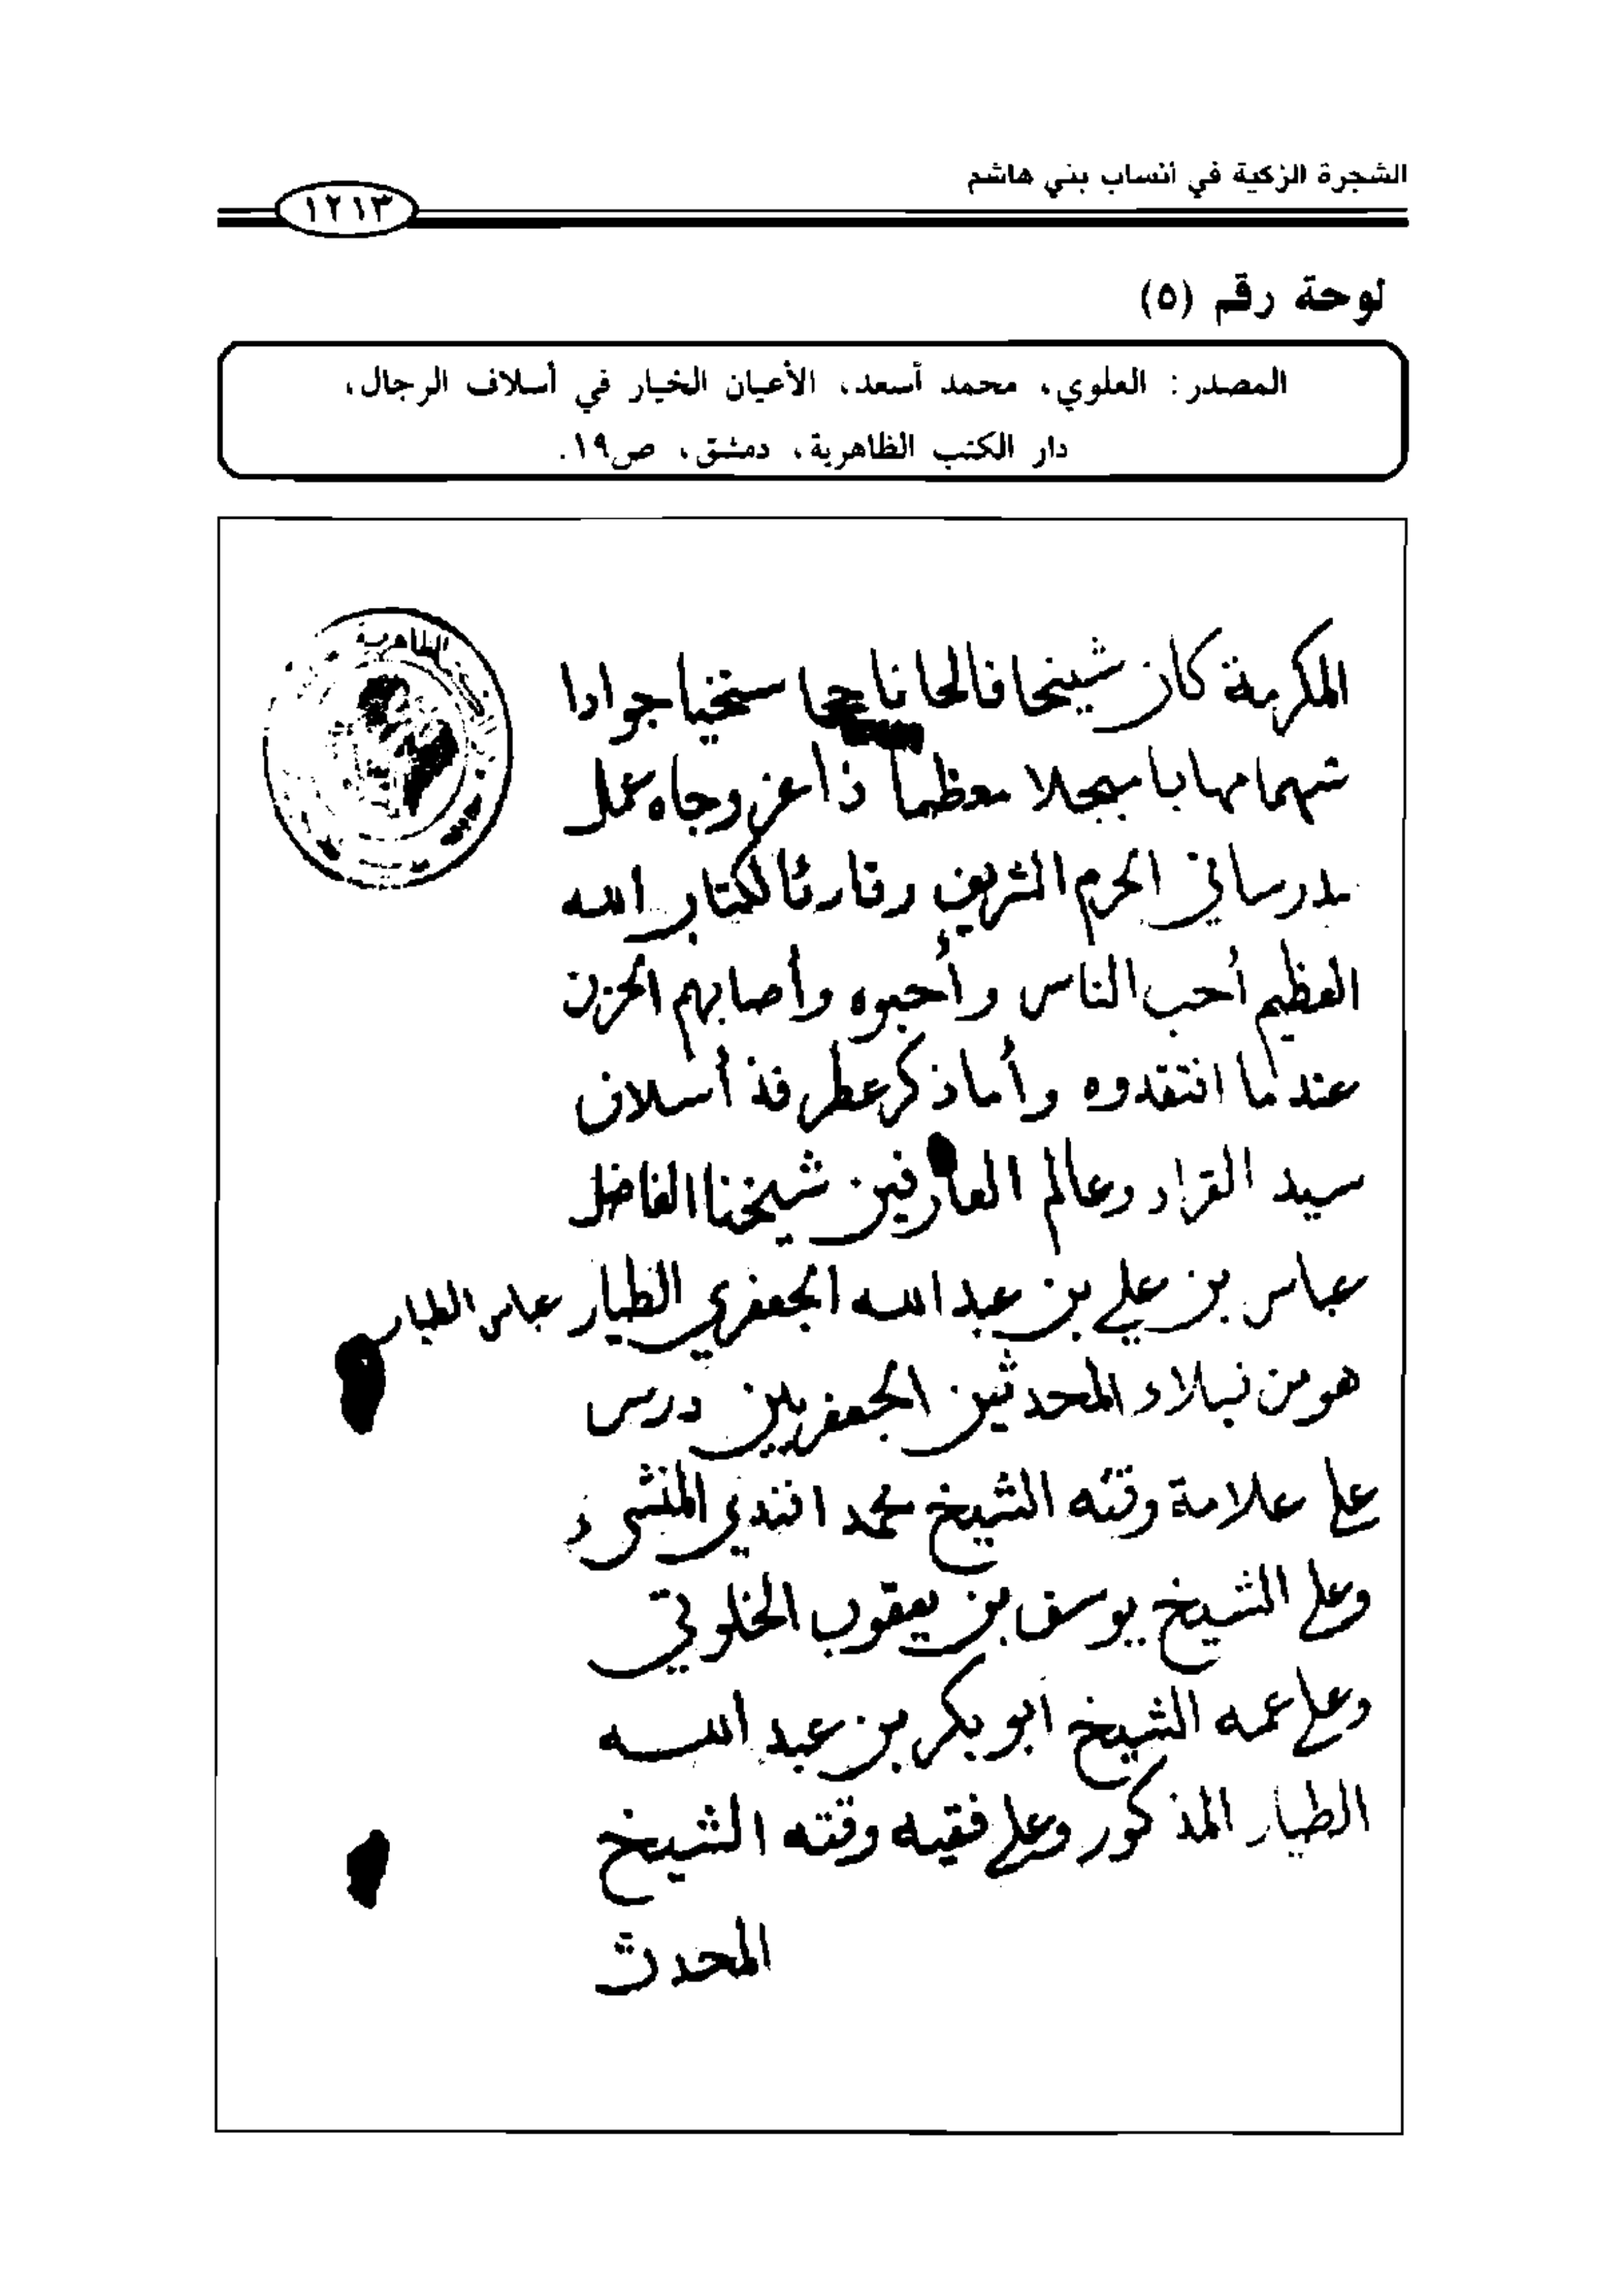 الشجرة الزكية في أنساب بني هاشم
١٢١٣
لوحة رقم (٥)
المصدر: العلوي، محمد أسعد، الأعيان الخيار في أسلاف الرجال،
دار الكتب الظاهرية، دمشق، ص١٩.
الظاهرية
المكرمة كان شيخا فالحا ناجحا سخيا جوادا
شهما مهابا مبجلا معظما ذا عز وجاه عمل
مدرسا في الحرم الشريف وقارئا لكتاب الله
العظيم أحب الناس وأحبوه وأصابهم الحزن
عندما افتقدوه وأما ذكر عطر فذ أسلاف
سيد القراء وعالم العارفين شيخنا الفاضل
عباس بن علي بن عبد الله الجعفري الطيار
عباس الطيار
هو من نبلاء المحدثين الجعفريين درس
على علامة وقته الشيخ محمد افندي المنشىء
وعلى الشيخ يوسف بن يعقوب الخلوتي
وعلى عمه الشيخ ابو بكر بن عبد الله
الطيار المذكور وعلى فقيه وقته الشيخ
المحدث